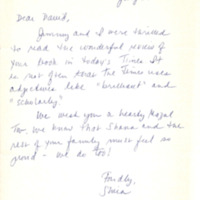 Dear David,
Jimmy and I were thrilled
to read the wonderful review of
your book in today's Times. It
is not often that the Times uses
adjectives like "brilliant" and
"scholarly."
We wish you a hearty Mazal
Tov. We know that Shana and the
rest of your family must feel as
proud - we do too!
Fondly,